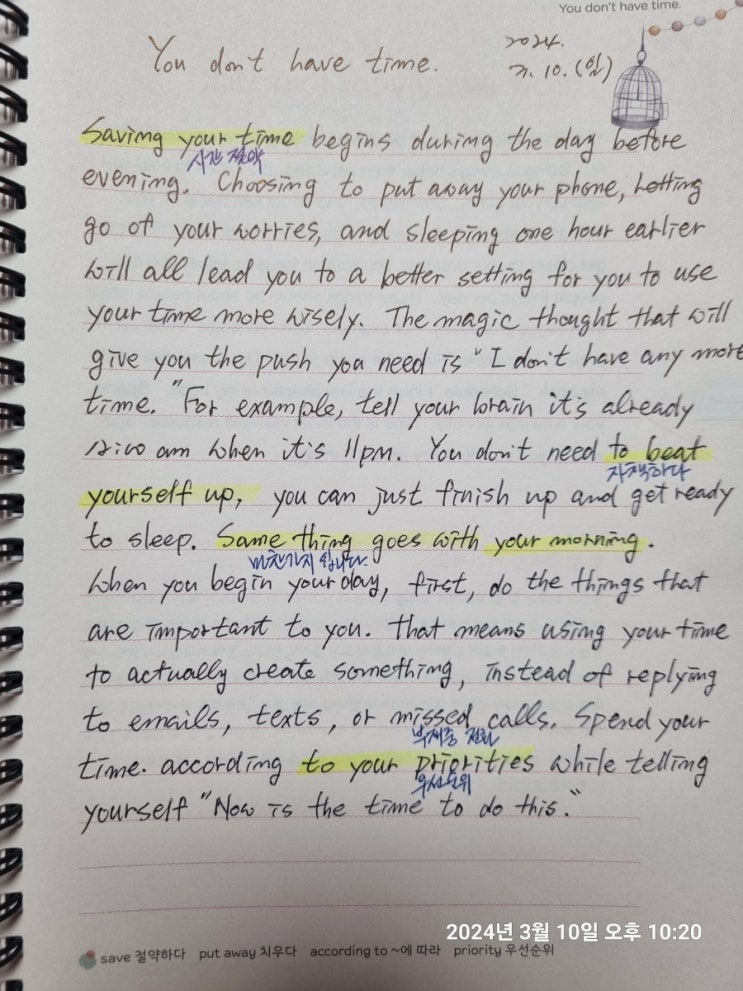 You don't have time.
You don't have time.
2024.
3. 10. (일)
Saving your time begins during the day before
시간 절약
evening. Choosing to put away your phone, letting
go of your worries, and sleeping one hour earlier
will all lead you to a better setting for you to use
your time more wisely. The magic thought that will
give you the push you need is "I don't have any more
time." For example, tell your brain it's already
am when it's 11pm. You don't need to beat
자책하다
yourself up, you can just finish up and get ready
to sleep. Same thing goes with your morning.
마찬가지 입니다.
When you begin your day, first, do the things that
are important to you. That means using your time
to actually create something, instead of replying
to emails, texts, or missed calls. Spend your
부재중 전화
time. according to your priorities while telling
우선순위
yourself "Now is the time to do this."
2024년 3월 10일 오후 10:20
save 절약하다 put away 치우다 according to ~에 따라 priority 우선순위